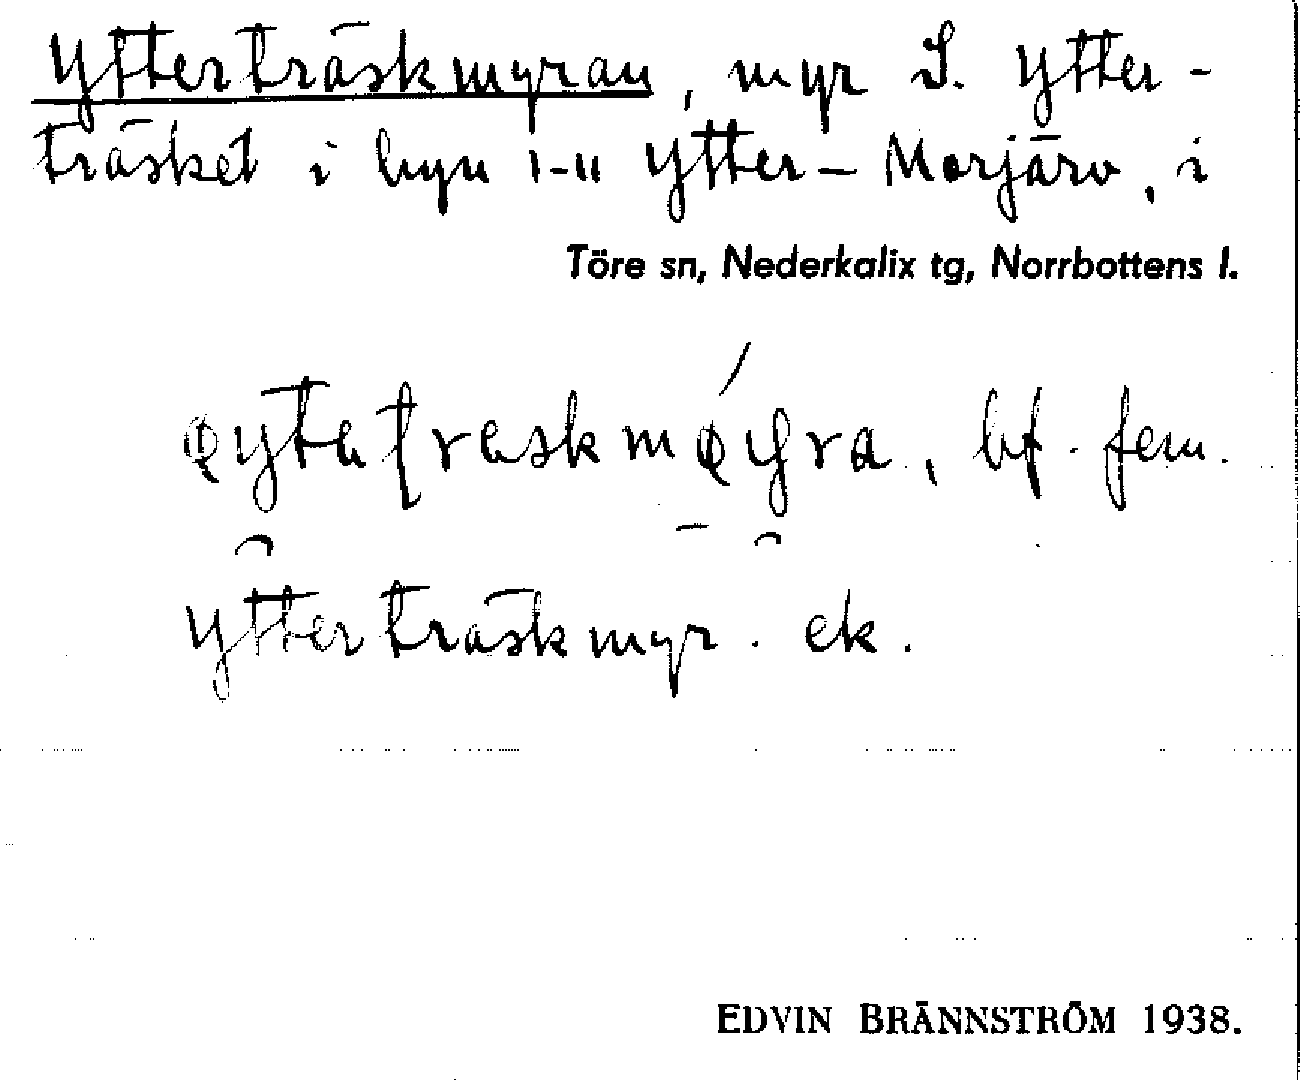 Ytterträskmyran, myr S. Ytter-
träsket i byn 1-11 Ytter-Morjärv, i
Töre sn, Nederkalix tg, Norrbottens l.
bf. fem.
Ytterträskmyr. ek.
EDVIN BRÄNNSTRÖM 1938.